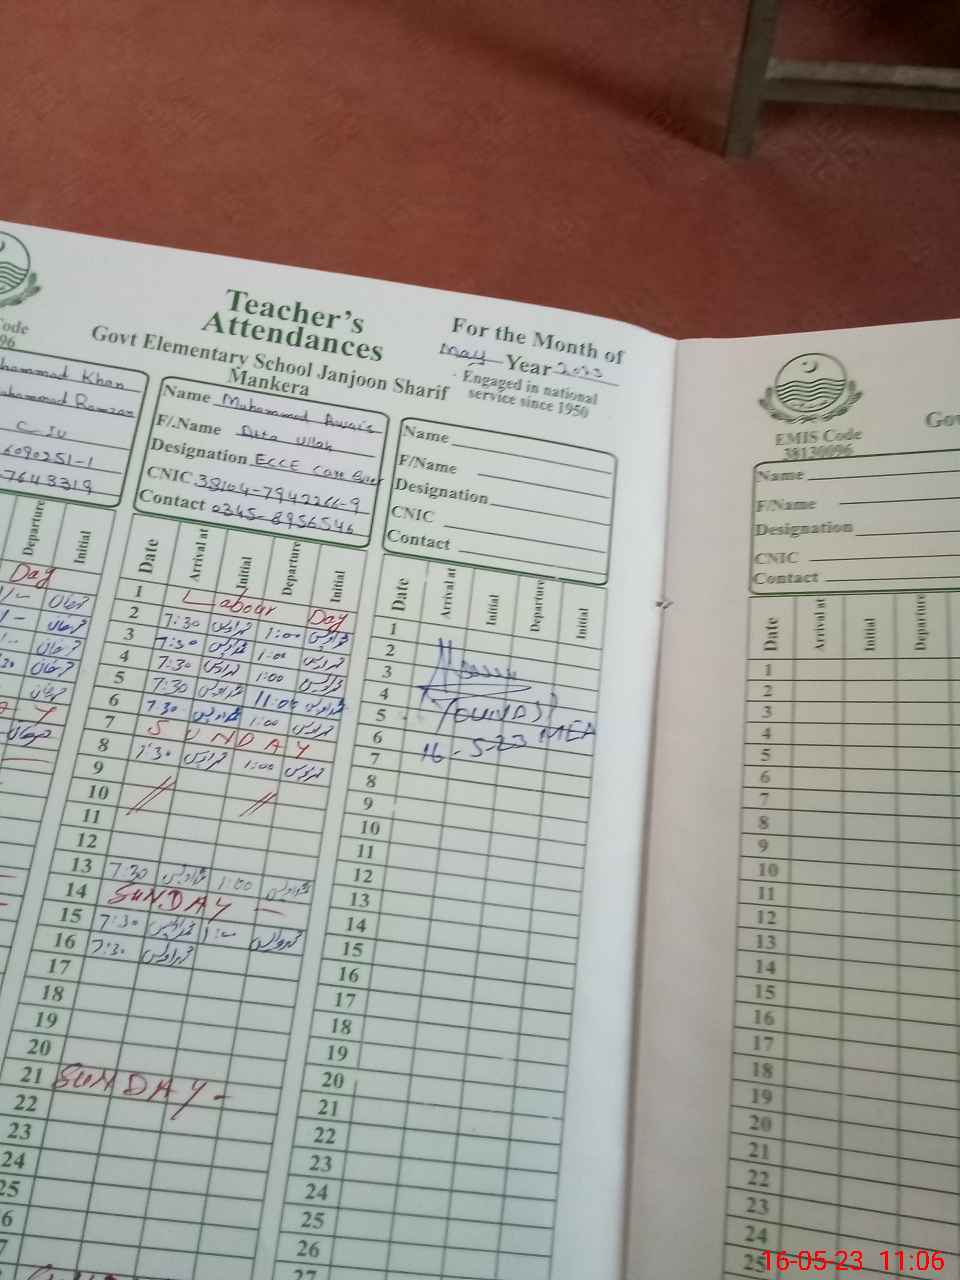 Teacher's
Attendances
Govt Elementary School Janjoon Sharif
Mankera
For the Month of
May Year 2023
Engaged in national
service since 1950
Code
96
Khan
C-IV
6090251-1
7643319
Departure
Initial
Day
Name Muhammad Awais
F/.Name Atta Ullah
Designation ECCE Care
CNIC 38104-7942266-9
Contact 0345-8956546
Date Arrival at Initial Departure Initial
1 Labour Day
2 7:30 1:00
3 7:30 1:00
4 7:30 1:00
5 7:30 11:00
6 7:30 1:00
7 SUNDAY
8 7:30 1:00
9
10 // //
11
12
13 7:30 1:00
14 SUNDAY
15 7:30 1:00
16 7:30
17
18
19
20
21 SUNDAY
22
23
24
25
6
7
Name
F/Name
Designation
CNIC
Contact
Date Arrival at Initial Departure Initial
1
2
3
4
5
6
7
MEA
16-5-23
8
9
10
11
12
13
14
15
16
17
18
19
20
21
22
23
24
25
26
27
EMIS Code
38130096
Go
Name
F/Name
Designation
CNIC
Contact
Date Arrival at Initial Departure
1
2
3
4
5
6
7
8
9
10
11
12
13
14
15
16
17
18
19
20
21
22
23
24
25
16-05-23 11:06